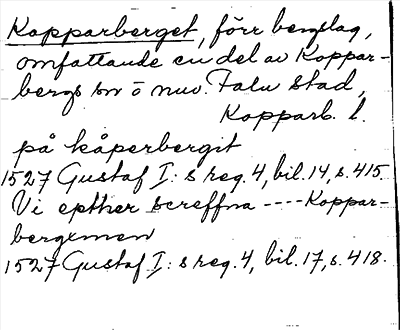 Kopparberget, förr bergslag,
omfattande en del av Koppar-
bergs sn o nuv. Falu stad,
Kopparb. l.
på kåperbergit
1527 Gustaf I:s reg. 4, bil. 14, s. 415.
Vi epther screffna ---- Koppar-
bergxmen
1527 Gustaf I:s reg. 4, bil. 17, s. 418.